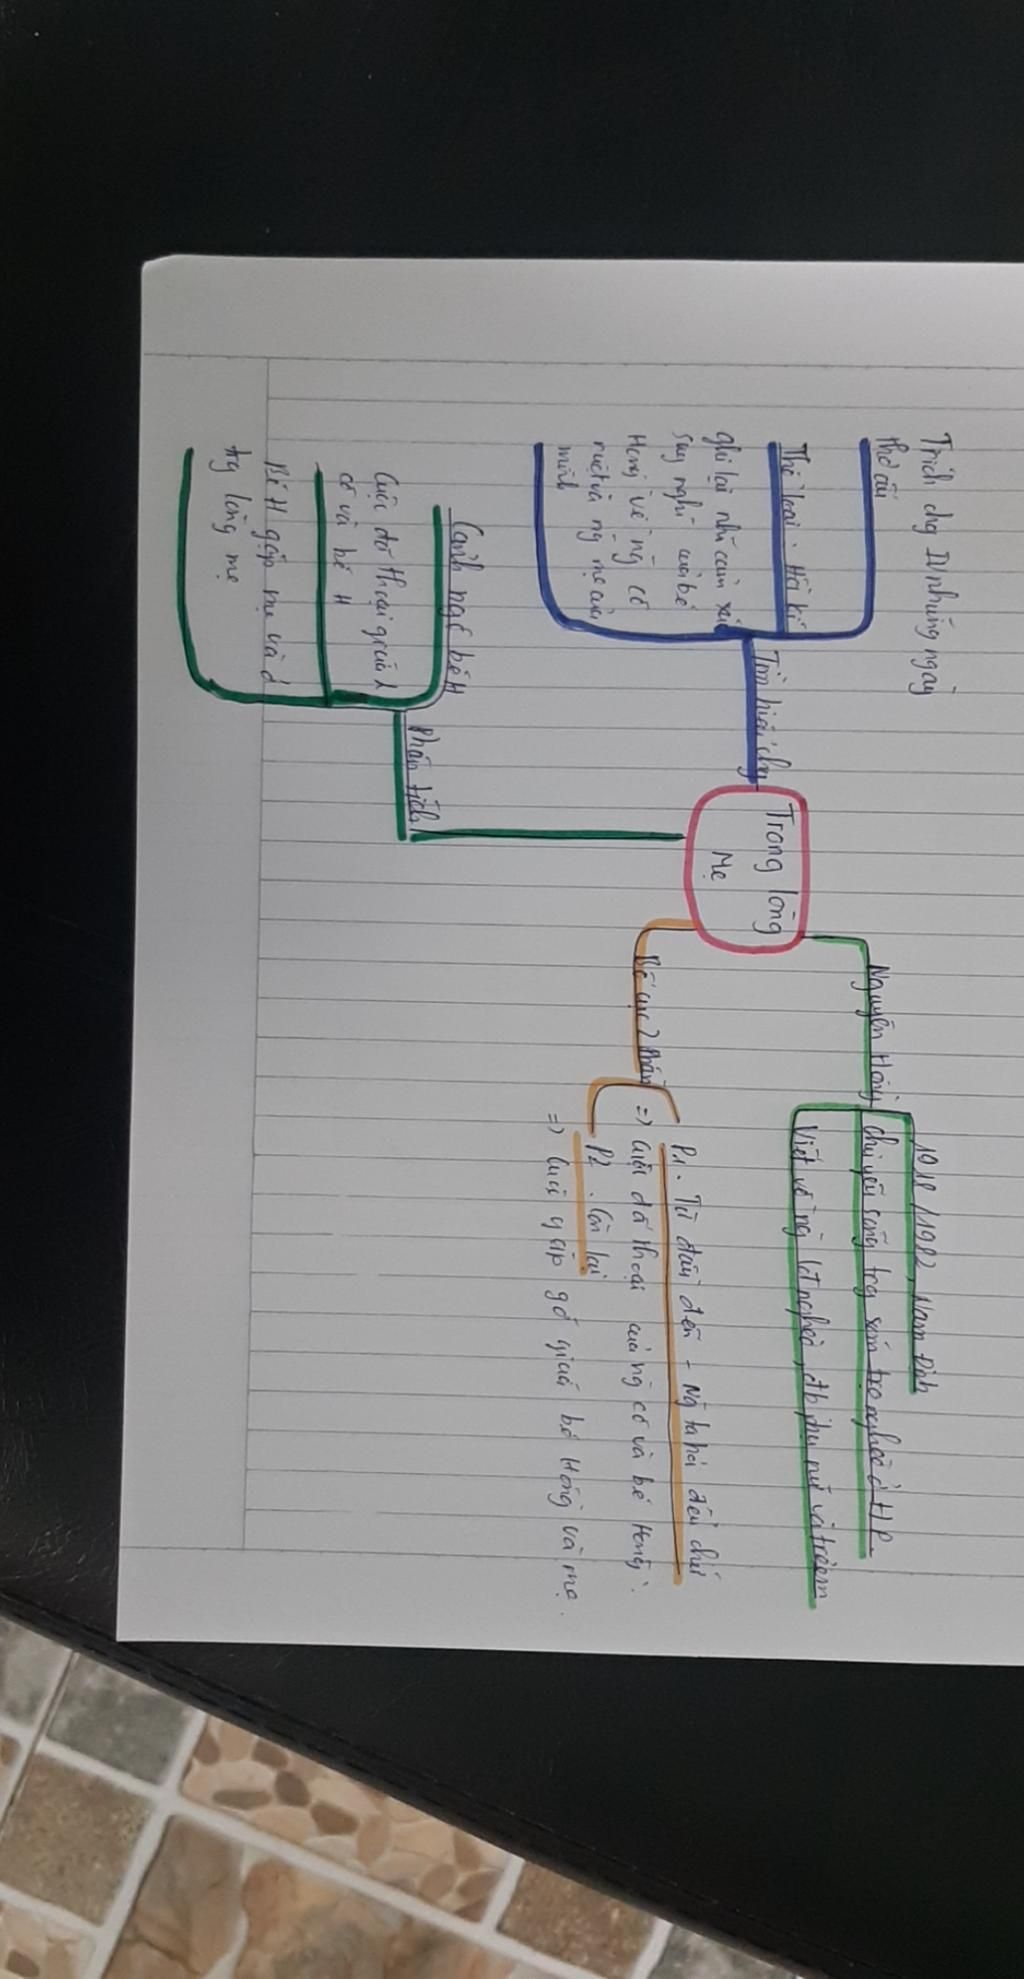 Trích chg IV những ngày
thơ ấu
Thể loại: Hồi kí
ghi lại nhĩ cảm xúc
suy nghĩ của bé
Hồng về ng cô
ruột và ng mẹ của
mình
Tìm hiểu chg
Trong lòng
Mẹ
Nguyên Hồng
1918/1982, Nam Định
chủ yếu sống trg xóm trọ nghèo ở HP
Viết về ng lđ nghèo, đb phụ nữ và trẻ em
Bố cục 2 phần
P1. Từ đầu đến - Ng ta hỏi đến chứ
=> Cuộc đố thoại của ng cô và bé Hồng.
P2. Còn lại
=> Cuộc gặp gỡ giữa bé Hồng và mẹ.
Phân tích
Cảnh ngộ bé H
Cuộc đố thoại giữa
cô và bé H
Bé H gặp mẹ và ở
trg lòng mẹ